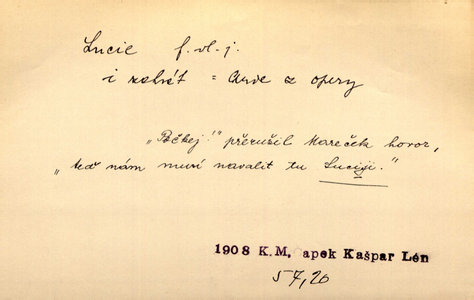 Lucie f. vl. j.
i zvlášť = z opery
„Počkej!" přerušil Mareček hovor,
„teď nám musí navalit tu Luciji."
1908 K.M. apek Kašpar Lén
57, 20